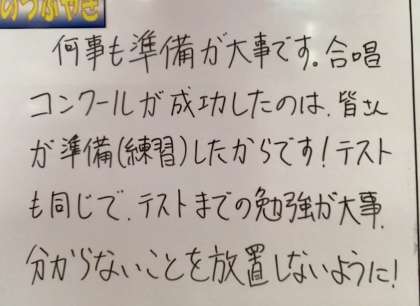 のつぶやき
何事も準備が大事です。合唱
コンクールが成功したのは、皆さん
が準備(練習)したからです！テスト
も同じで、テストまでの勉強が大事、
分からないことを放置しないように！